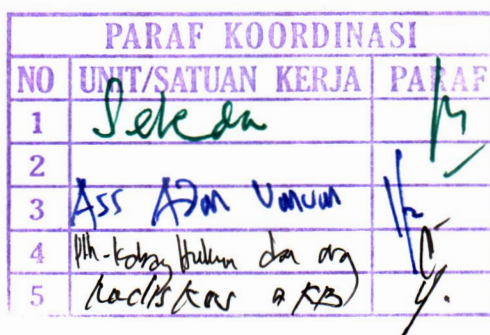 PARAF KOORDINASI
NO UNIT/SATUAN KERJA PARAF
1 Sekda
2
3 Ass Adm Umum
4 Plh-Kabag Hukum dan org
5 Kadis